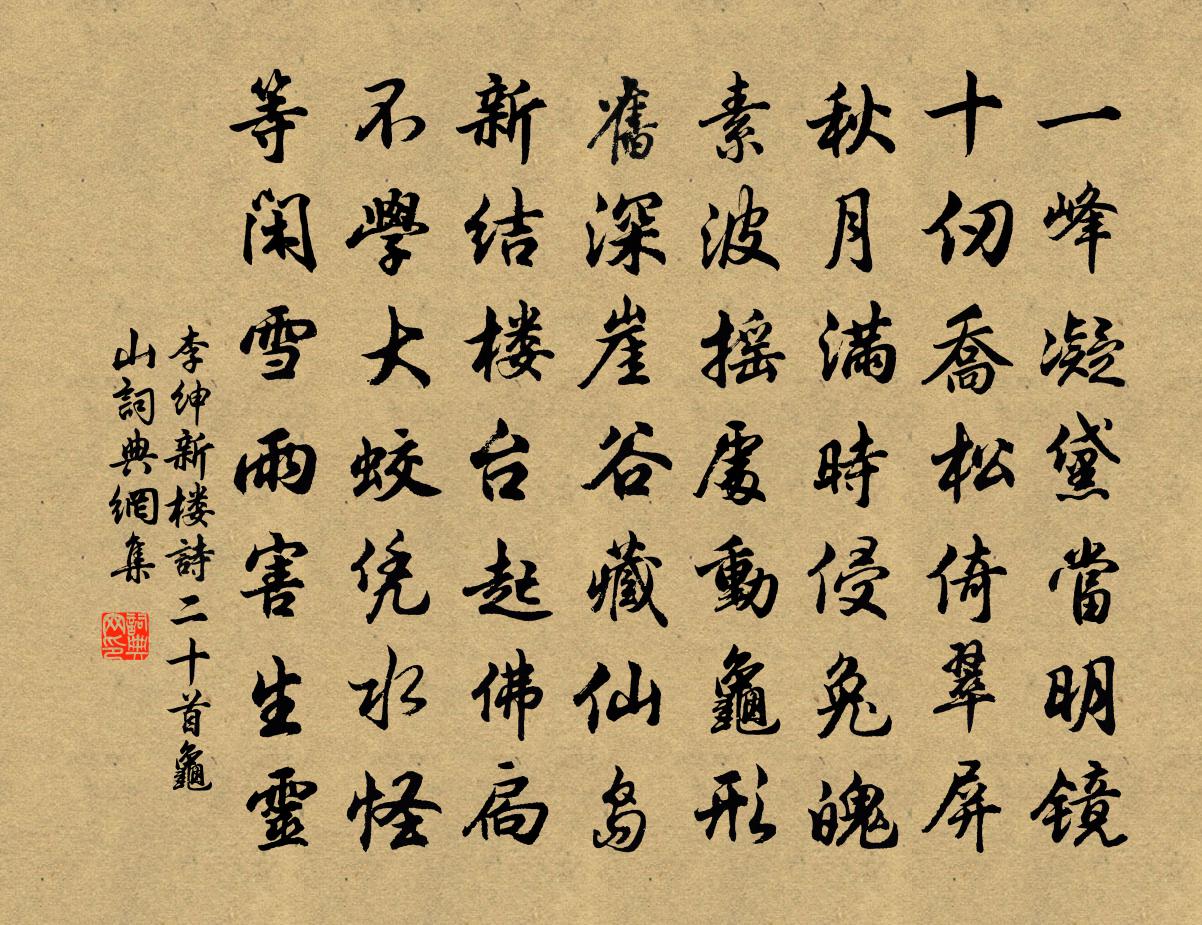 一峰凝黛當明镜
十仞喬松倚翠屏
秋月滿時侵兔魄
素波摇處動龜形
舊深崖谷藏仙島
新结楼台起佛扃
不學大蛟凭水怪
等闲雪雨害生靈
李绅新楼詩二十首龜
山詞典網集
詞典
网印